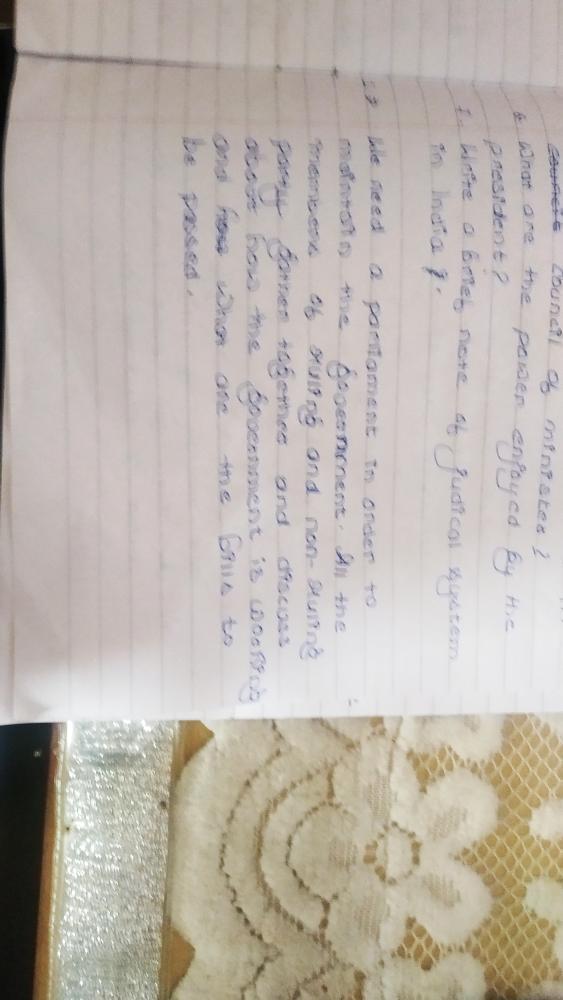 council of ministes?
6. What are the power enjoyed by the
president?
7. Write a brief note of judical system
in India?.
We need a parliament in order to
maintain the government. All the
members of ruling and non-ruling
party gather together and discuss
about how the government is working
and how what are the bills to
be passed.